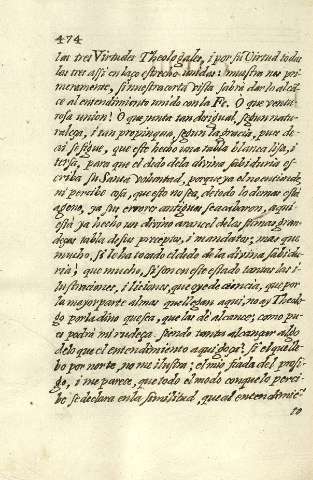 474
las tres Virtudes Theologales, i por su Virtud todas
las tres assi en lazo estrecho unidas: muestra nos pri-
meramente, si nuestra corta vista sabrà dar lo alcã-
ce al entendimiento unido con la Fe. O que ventu
rosa union! O que junta tan desigual, segun natu-
raleza, i tan propinqua, segun la gracia, pues de
aì se sigue, que este hecho una tabla blanca lisa, i
tersa, para que el dedo de la divina sabiduria es-
criba su Santa Voluntad, porque ya el no entiende,
ni percibe cosa, que esto no sea, de todo lo demas està
ageno, ya sus errores antiguos se acabaron, aqui
està ya hecho un divino de las
tabla de sus preceptos, i mandatos; mas que
mucho, si le ha tocado el dedo de la divina sabidu-
ria; que mucho, si son en este estado tantas las i-
lustraciones, i liciones, que oye de ciencia, que por
la mayor parte almas que llegan aqui, no ay Theolo-
go por ladino que sea, que las dè alcance; como pu-
es podrà mi rudeça siendo tanta alcançar algo
de lo que el entendimiento aqui goça? si el que lle-
bo por norte, no me ilustra; el mio fiada del prosi-
go, i me parece, que todo el modo con que lo perci-
bo se declara en la similitud, que al entendimiẽ-
to